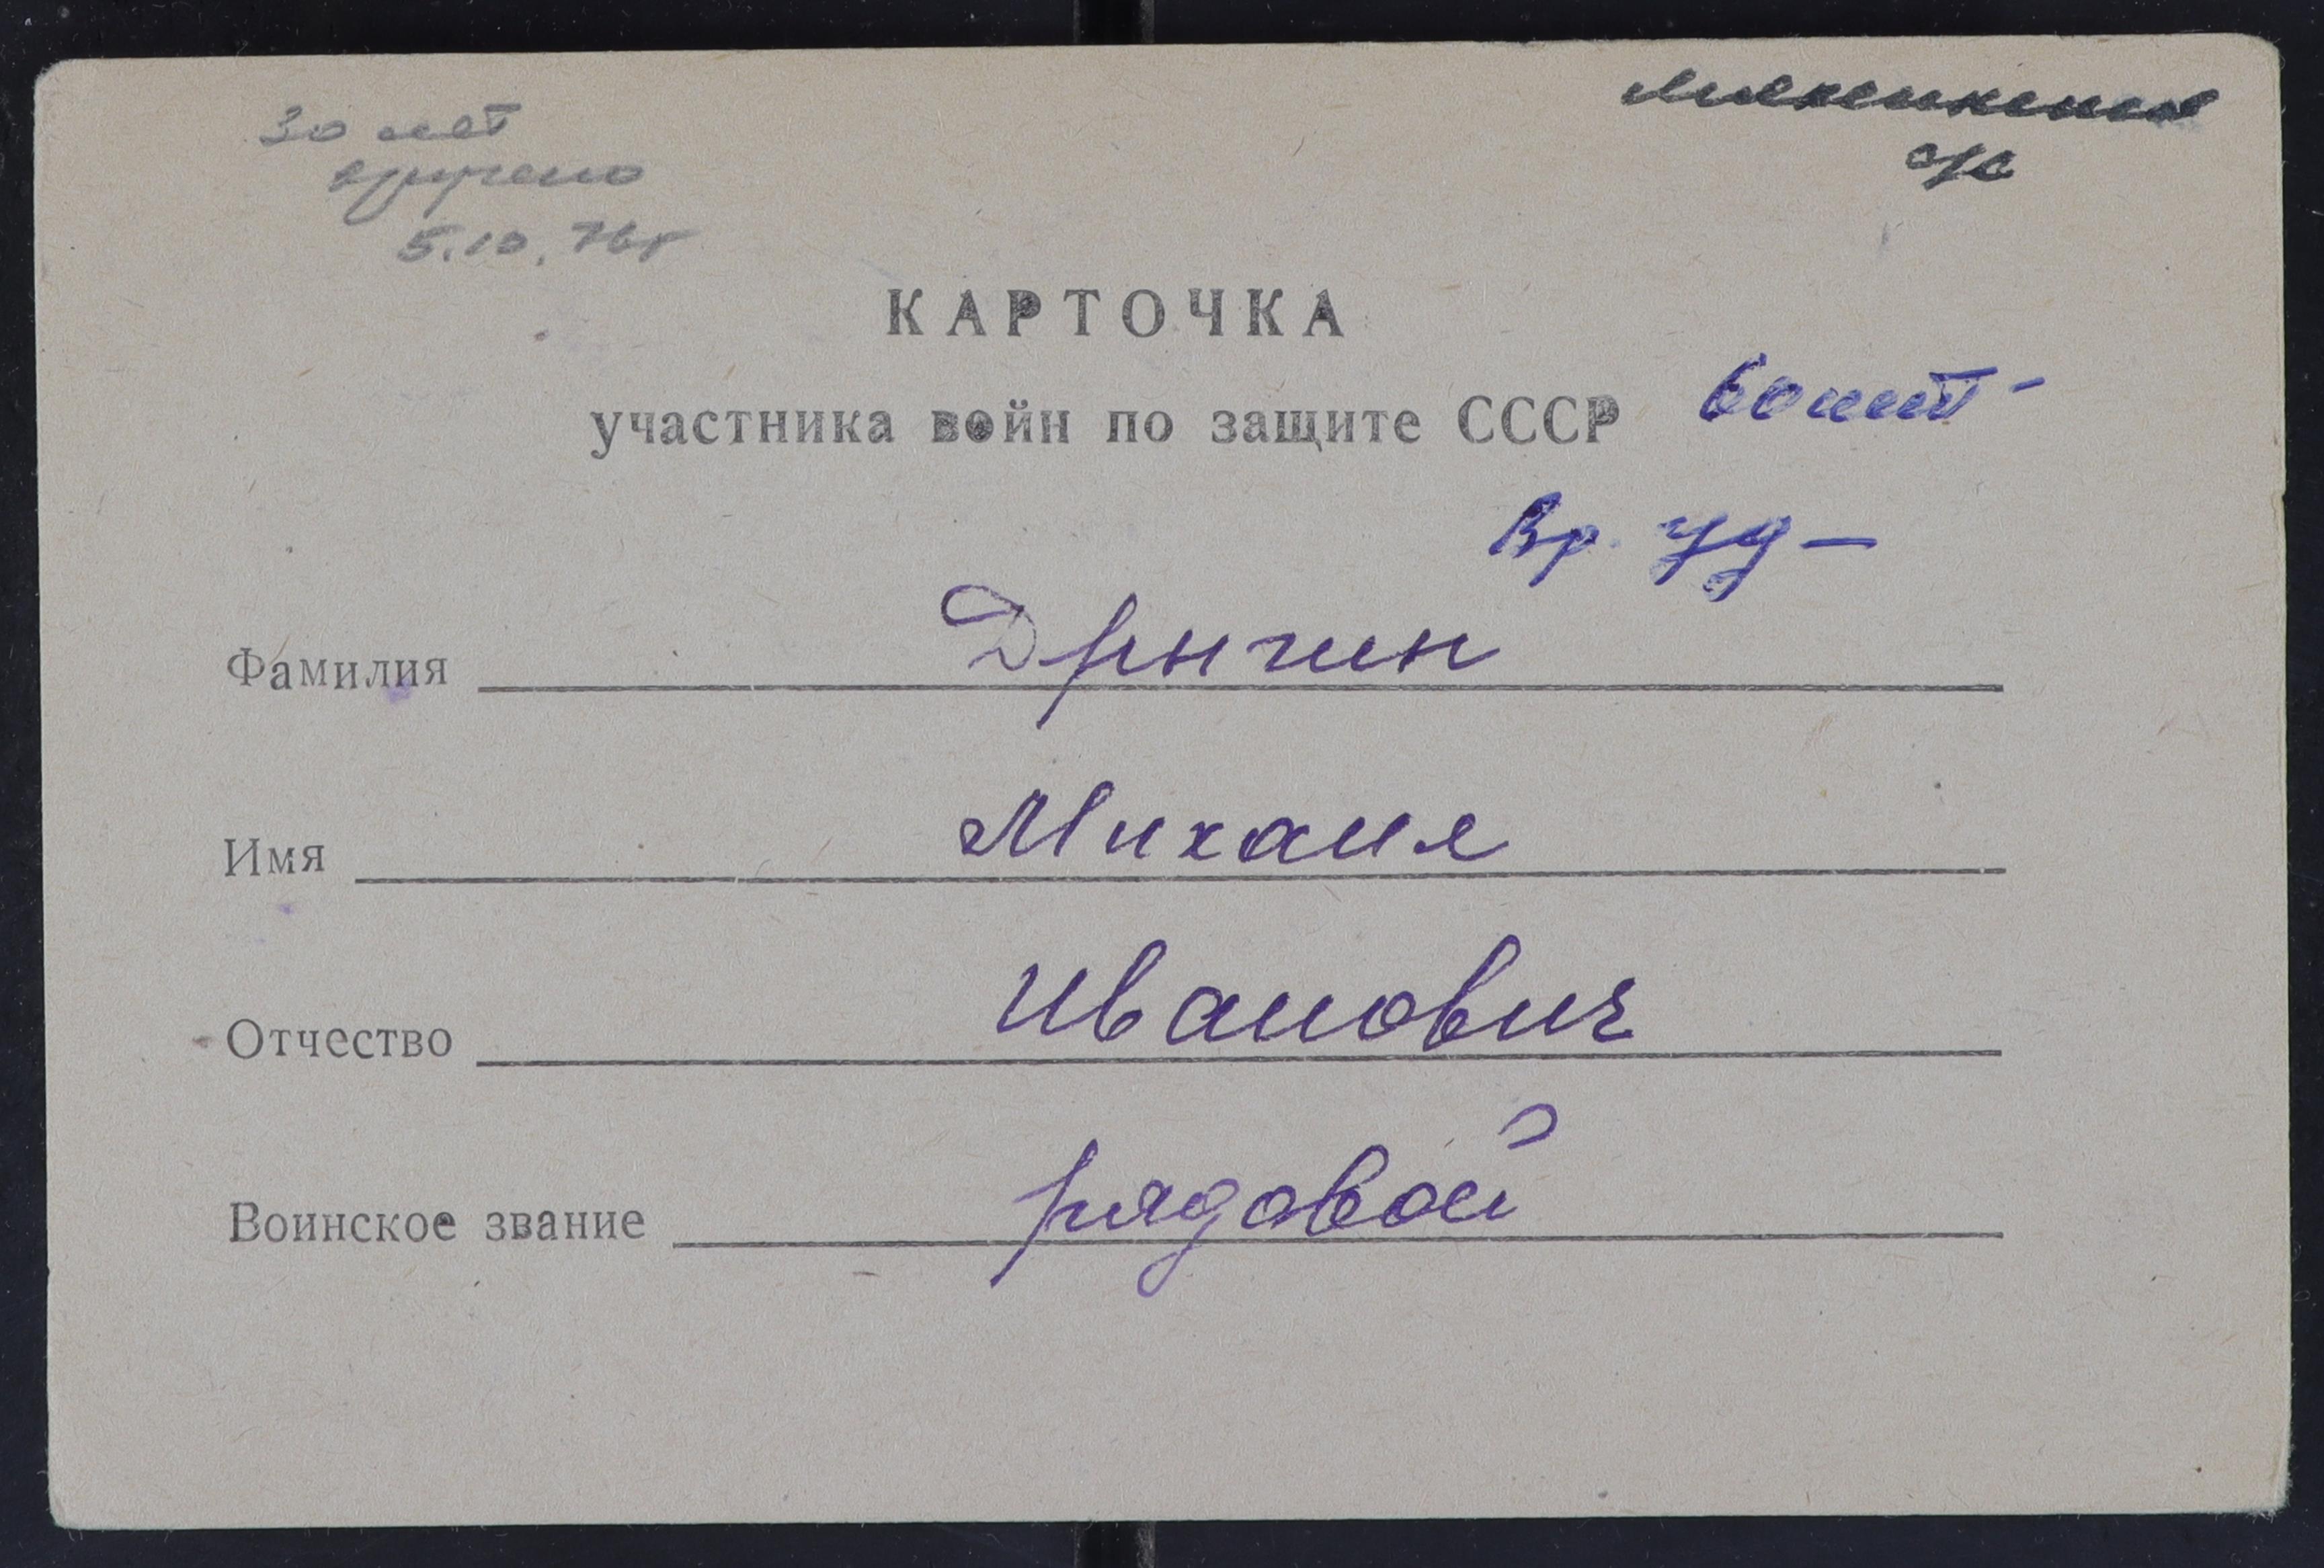 30 лет
вручено
5.10.76г
с/с
КАРТОЧКА
участника войн по защите СССР
60 лет -
Вр. уд -
Фамилия Дрынгин
Имя Михаил
Отчество Иванович
Воинское звание рядовой